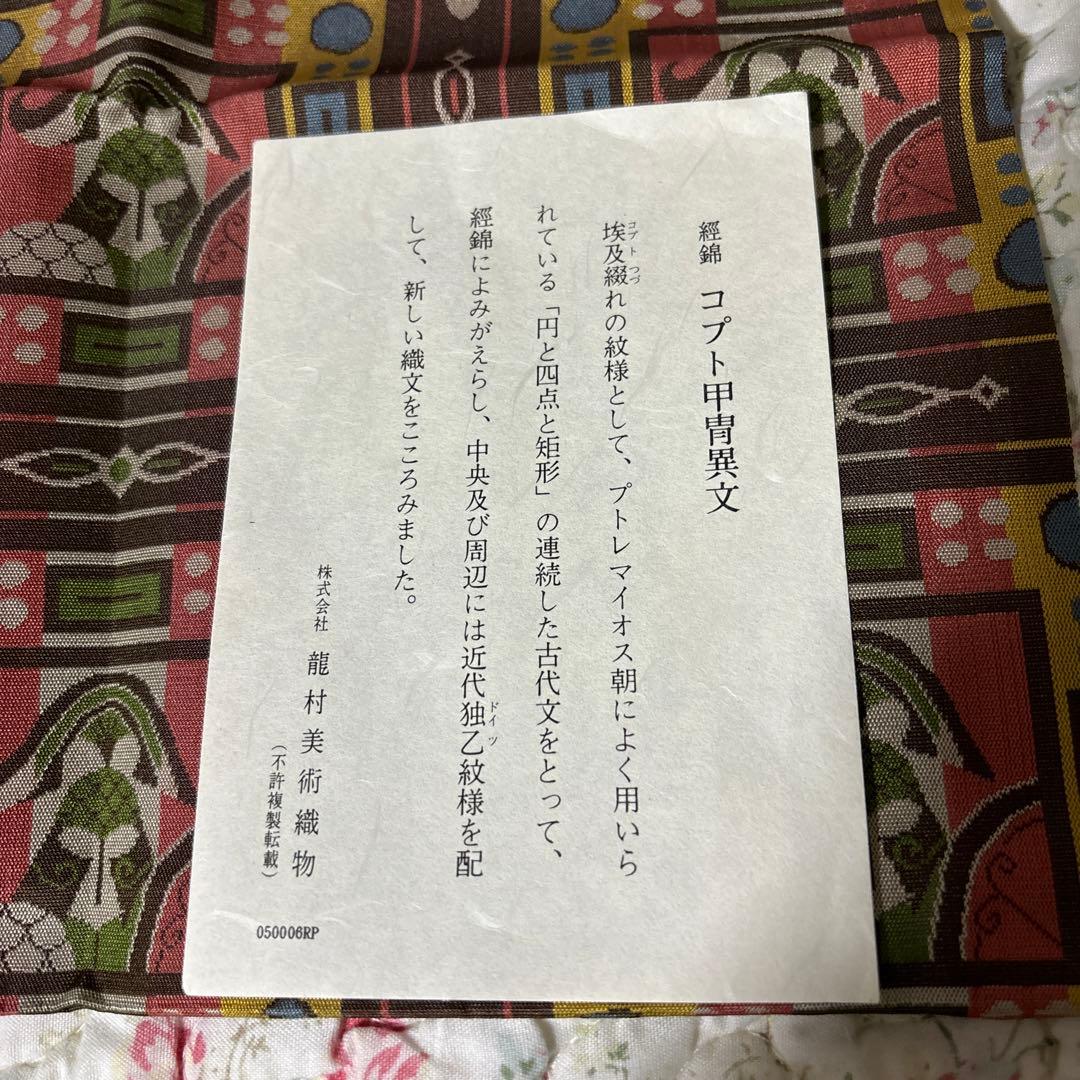 經錦 コプト甲冑異文
埃及綴れの紋様として、プトレマイオス朝によく用いら
れている「円と四点と矩形」の連続した古代文をとって、
經錦によみがえらし、中央及び周辺には近代独乙紋様を配
して、新しい織文をこころみました。
株式会社 龍村美術織物
(不許複製転載)
050006RP